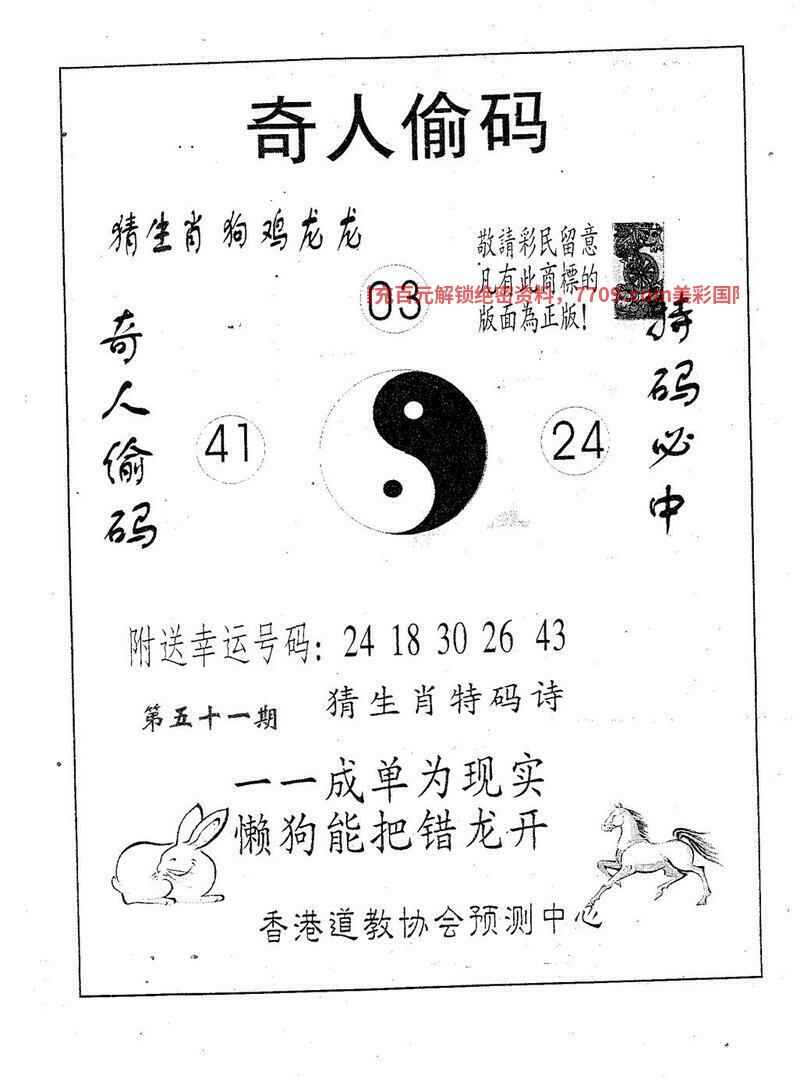 奇人偷码
猜生肖狗鸡龙龙
敬請彩民留意
凡有此商標的
版面為正版!
03
充百元解锁绝密资料，7709.com美彩国际
奇人偷码
41
24
特码必中
附送幸运号码: 24 18 30 26 43
第五十一期
猜生肖特码诗
一一成单为现实
懒狗能把错龙开
香港道教协会预测中心